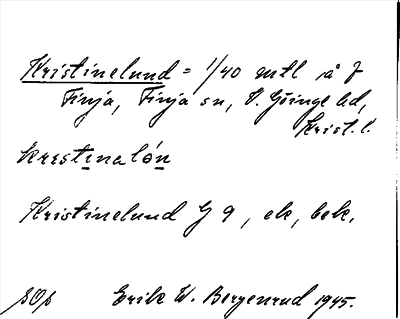 Kristinelund = 1/40 mtl å 7
Finja, Finja sn, V. Göinge hd,
Krist. l.
krestinalón
Kristinelund G 9, ek, bek.
Erik W. Bergenrud 1945.